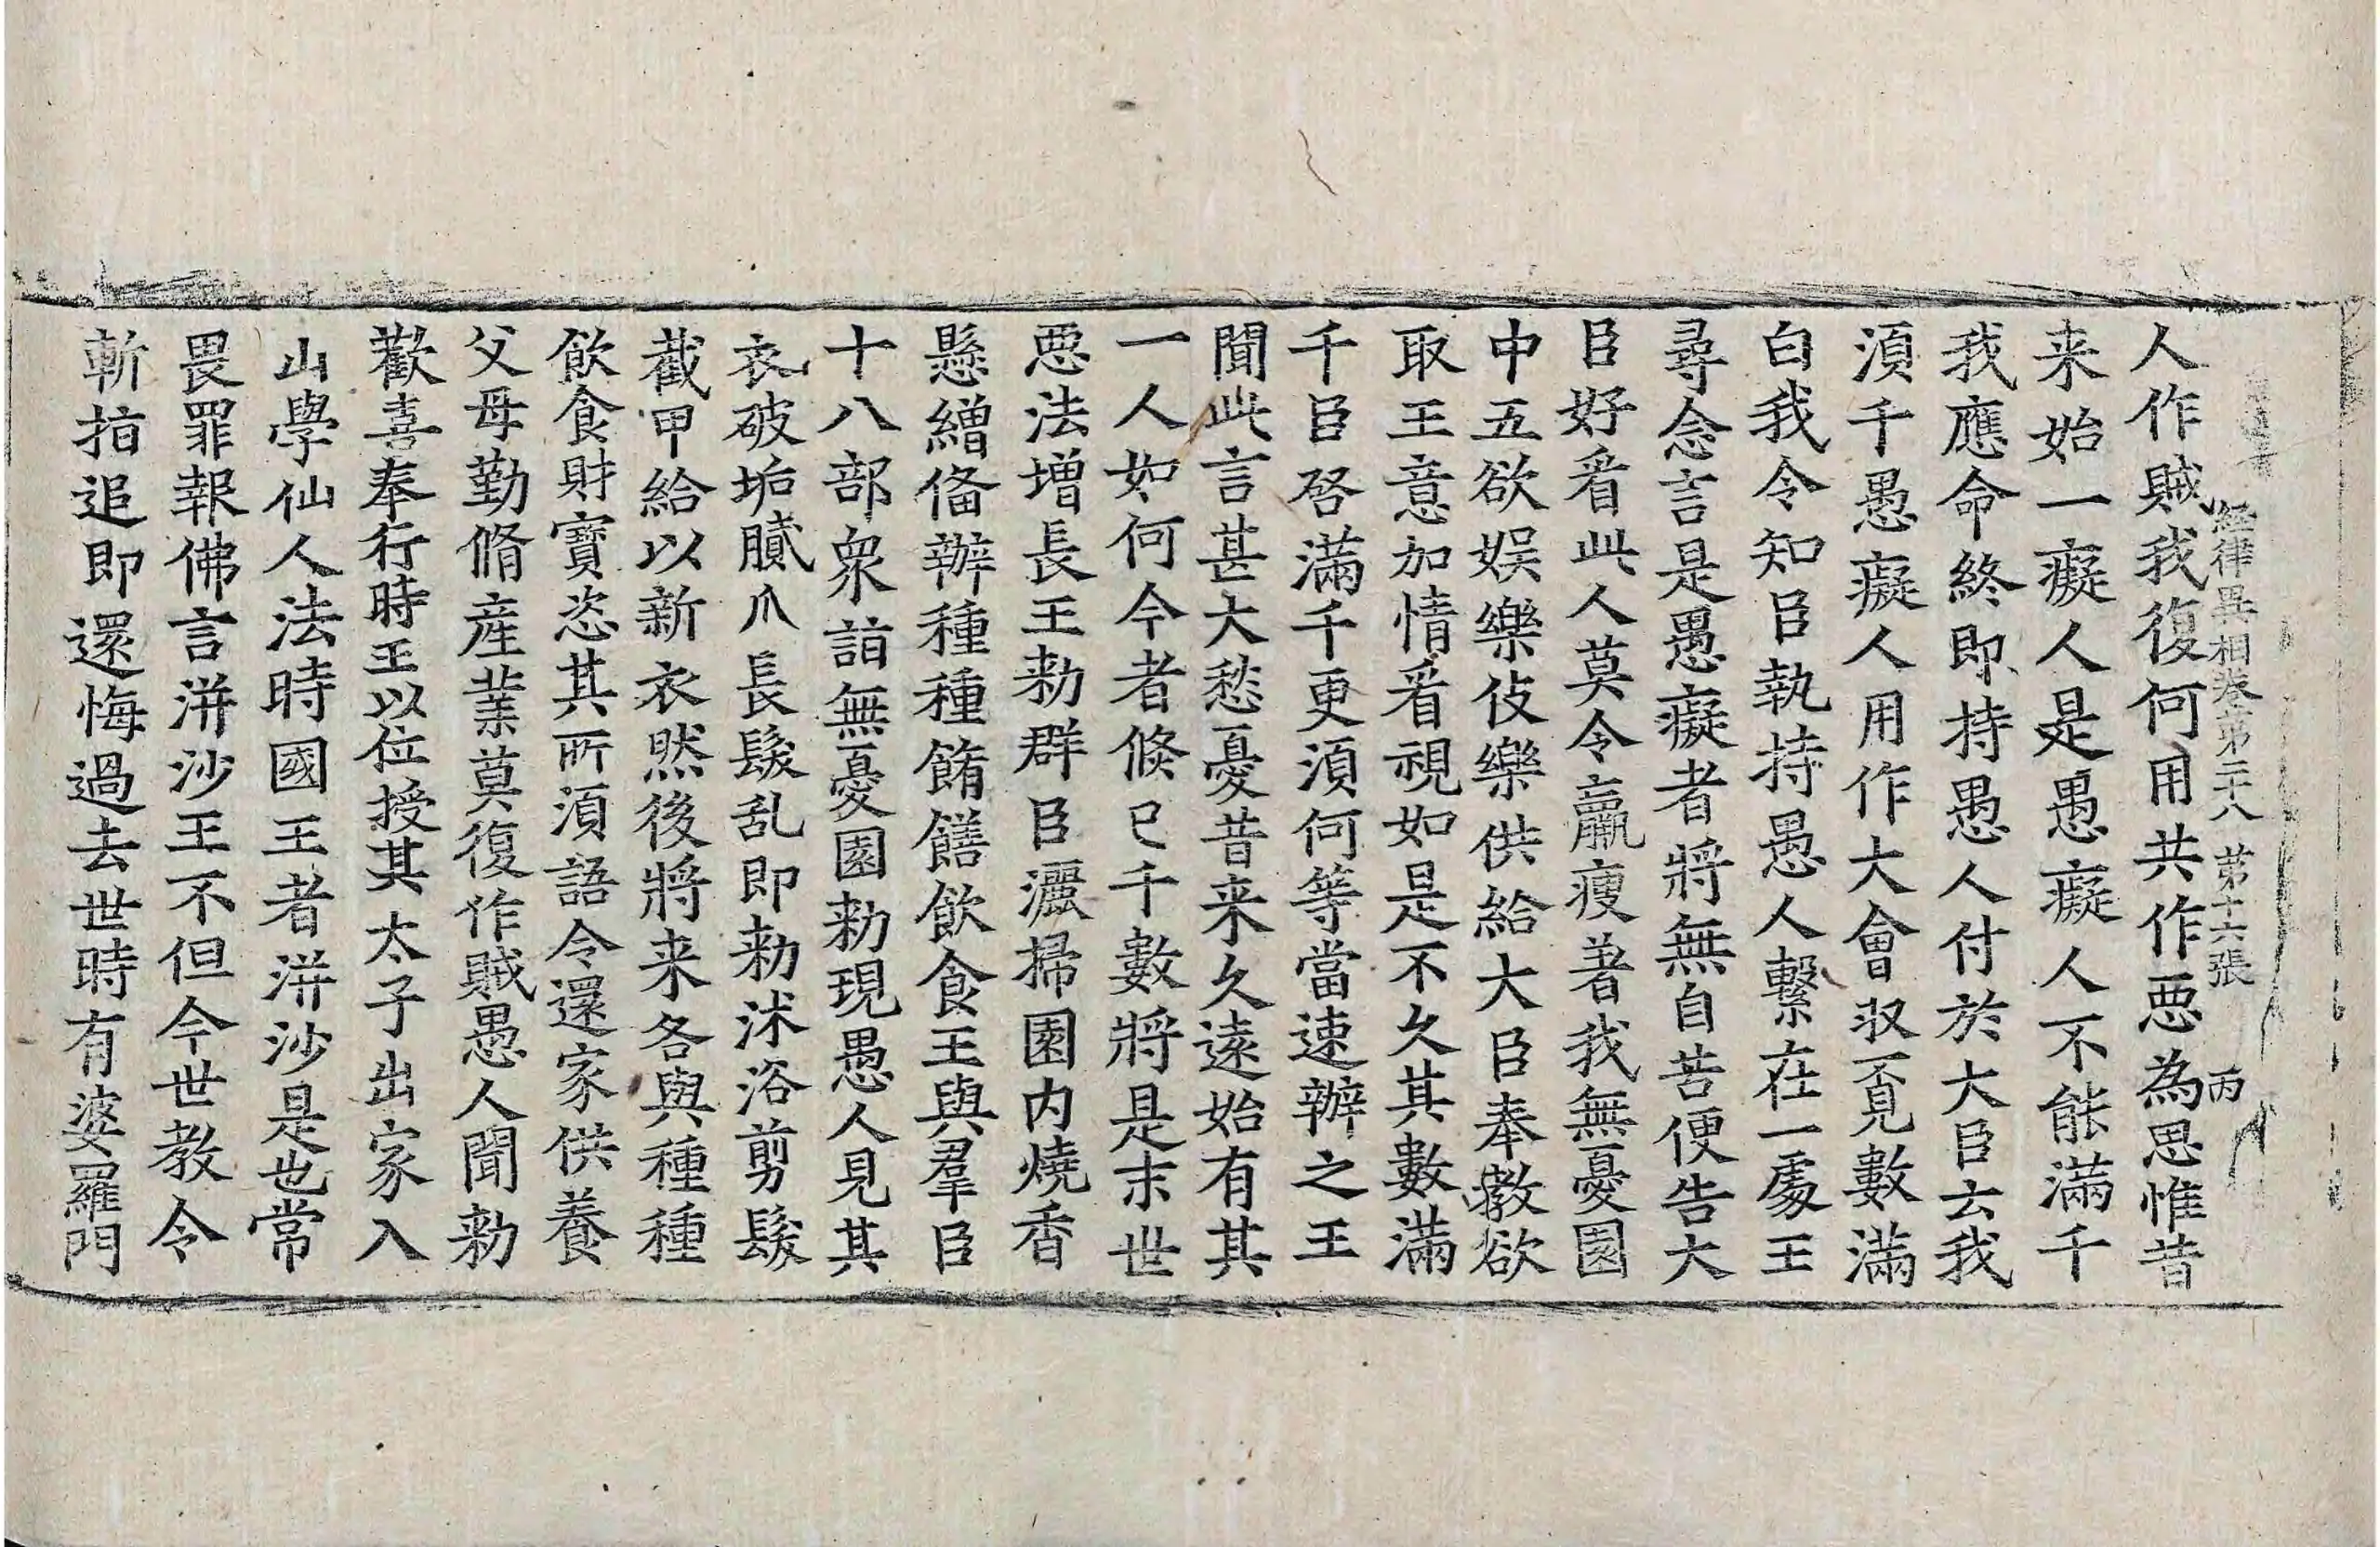 經律異相卷第二十八 第十六張 丙
人作賊我復何用共作惡為思惟昔
来始一癡人是愚癡人不能滿千
我應命終即持愚人付於大臣云我
湏千愚癡人用作大會㕞覔數滿
白我令知臣執持愚人繫在一處王
尋念言是愚癡者將無自苦便告大
臣好㸔此人莫令羸瘦著我無憂園
中五欲娛樂伎樂供給大臣奉教欲
取王意加情㸔視如是不久其數滿
千臣啓滿千更湏何等當速辦之王
聞此言甚大愁憂昔来久遠始有其
一人如何今者倏已千數將是末世
惡法增長王勑群臣灑掃園内燒香
懸繒俻辦種種餚饍飲食王與羣臣
十八部衆詣無憂園勑現愚人見其
衣破垢膩爪長髮乱即勑沐浴剪髮
截甲給以新衣然後將来各與種種
飲食財寶恣其所湏語令還家供養
父母勤脩産業莫復作賊愚人聞勑
歡喜奉行時王以位授其太子出家入
山學仙人法時國王者洴沙是也常
畏罪報佛言洴沙王不但今世教令
斬指追即還悔過去世時有婆羅門